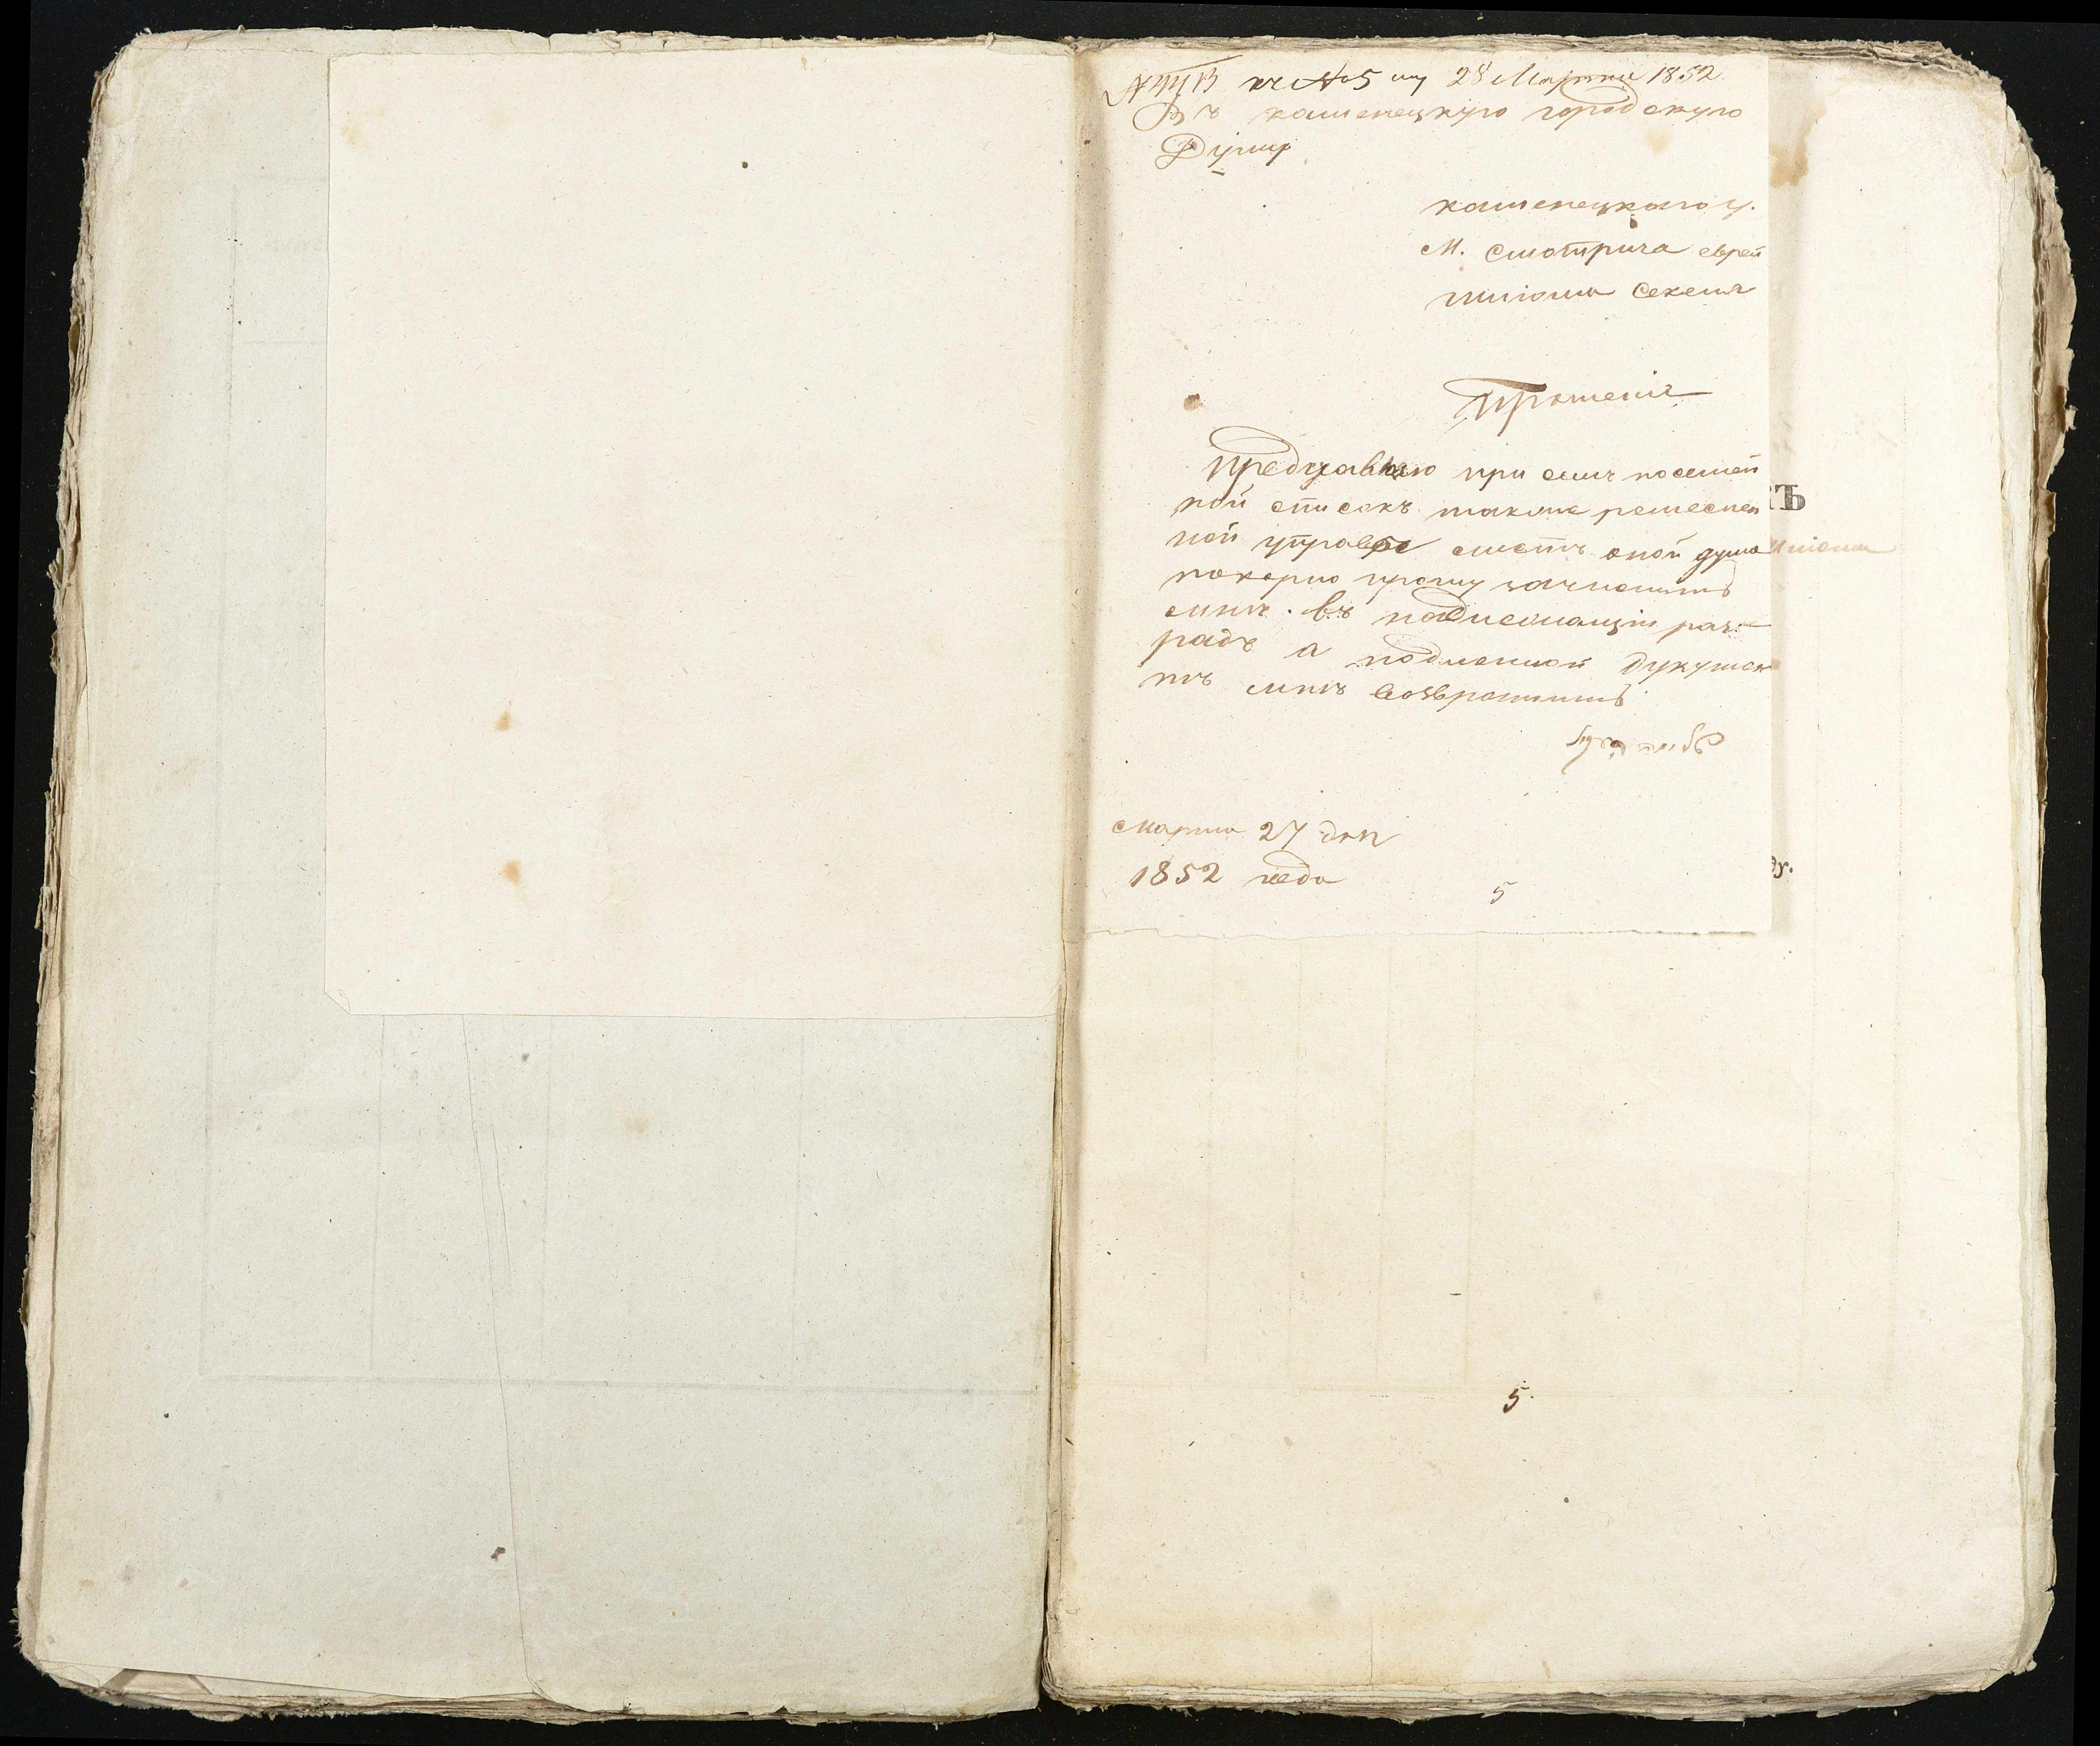 къ № 5 му 28 Марта 1852
Въ каменецкую городскую
Думу
каменецкого у.
М. Смотрича еврей
шлиома Секеля
Прошенія
Представляю при семъ посемей
ной списокъ также ремеснен
ной управе оной
покорно прошу зачислить
мнѣ въ надлежащій раз:
радъ а подленной дукумен
тъ мнѣ возвратить
марта 27 дня
1852 года
5
ТЪ
ду.
5.